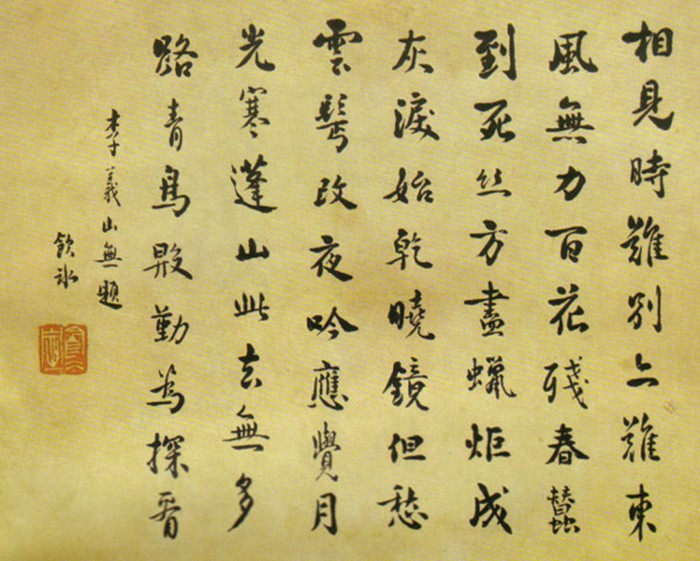 相見時難別亦難東
風無力百花殘春蠶
到死丝方盡蠟炬成
灰淚始乾曉鏡但愁
雲鬢改夜吟應覺月
光寒蓬山此去無多
路青鳥殷勤為探看
李義山無題
飲冰